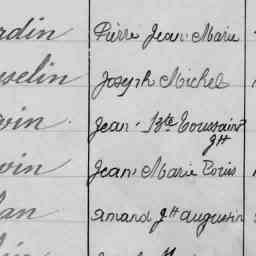 rdin Pierre Jean Marie
selin Joseph Michel
vin Jean Bte Toussaint
Jh
vin Jean Marie Louis
lan Amand Jh Augustin